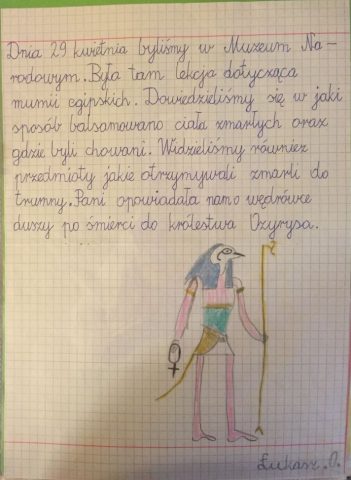 Dnia 29 kwietnia byliśmy w Muzeum Na-
rodowym. Była tam lekcja dotycząca
mumii egipskich. Dowiedzieliśmy się w jaki
sposób balsamowano ciała zmarłych oraz
gdzie byli chowani. Widzieliśmy również
przedmioty jakie otrzymywali zmarli do
trumny. Pani opowiadała nam o wędrówce
duszy po śmierci do królestwa Ozyrysa.
Łukasz .O.